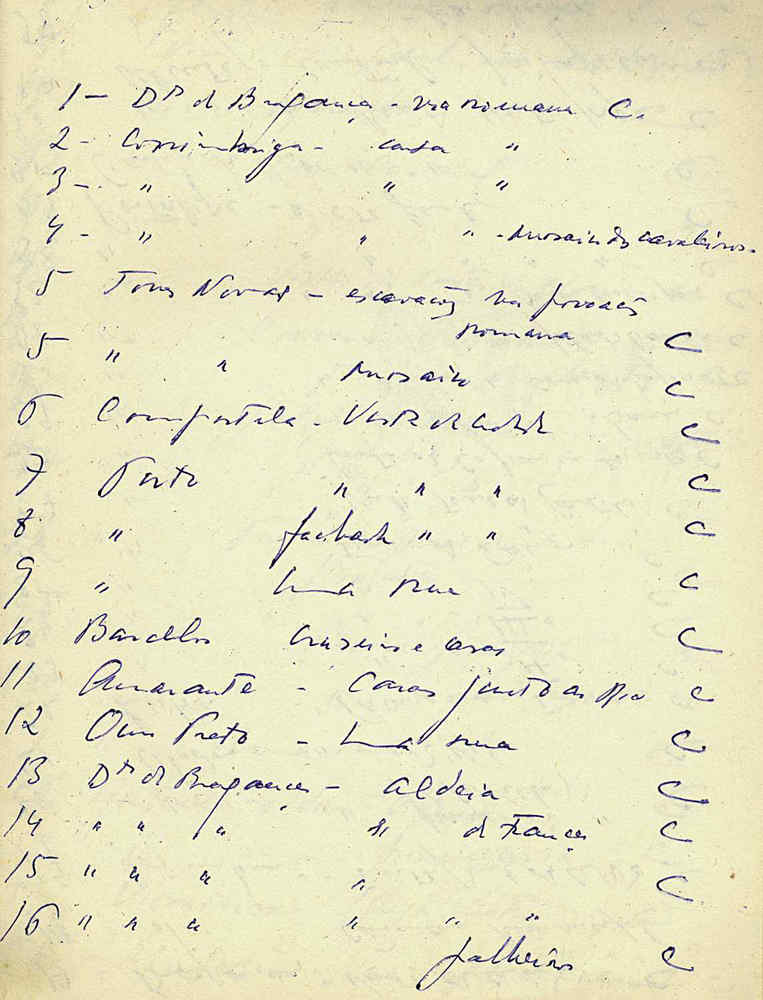 1 - Dto de Bragança - via romana C.
2 - Conimbriga - casa "
3 - " " "
4 - " " " - Mosaico dos cavaleiros.
5 Torres Novas - escavações
romana C
5 " " Mosaico C
6 Compostela - C
7 Porto " " " C
8 " fachada " " C
9 " Uma rua C
10 Barcelos Cruzeiro e casas C
11 Amarante - Casas junto ao Rio C
12 Ouro Preto - Uma rua C
13 Dto de Bragança - aldeia C
14 " " " " de França C
15 " " " " C
16 " " " " " "
palheiros C